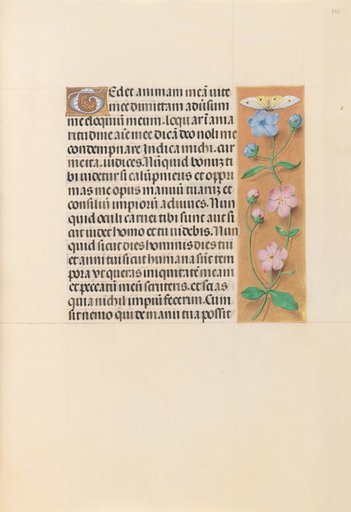 Tedet animam meā vite
mee dimittam adūsum
me eloquiū meum. loquar ī ama
ritudine aīe mee dicā deo noli me
contempnare Indica michi. cur
me ita. iudices. Nūquid bonuz ti
bi videtur si calūpnieris et oppri
mas me opus manuū tuarū et
consiliū impiorū adiuues. Nun
quid oculi carnei tibi sunt aut si
cut videt homo et tu videbis. Nun
quid sicut dies hominis dies tui
et anni tui sicut humana sūt tem
pora Vt queras iniquitatē meam
et peccatū meū scruteris. et scias
quia nichil impiū fecerim. Cum
sit nemo qui de manu tua possit